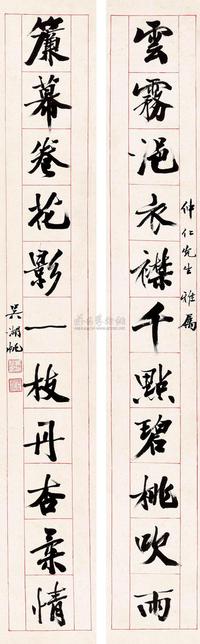 雲霧浥衣襟千點碧桃吹雨
仲仁先生雅属
簾幕卷花影一枝丹杏柔情
吳湖帆